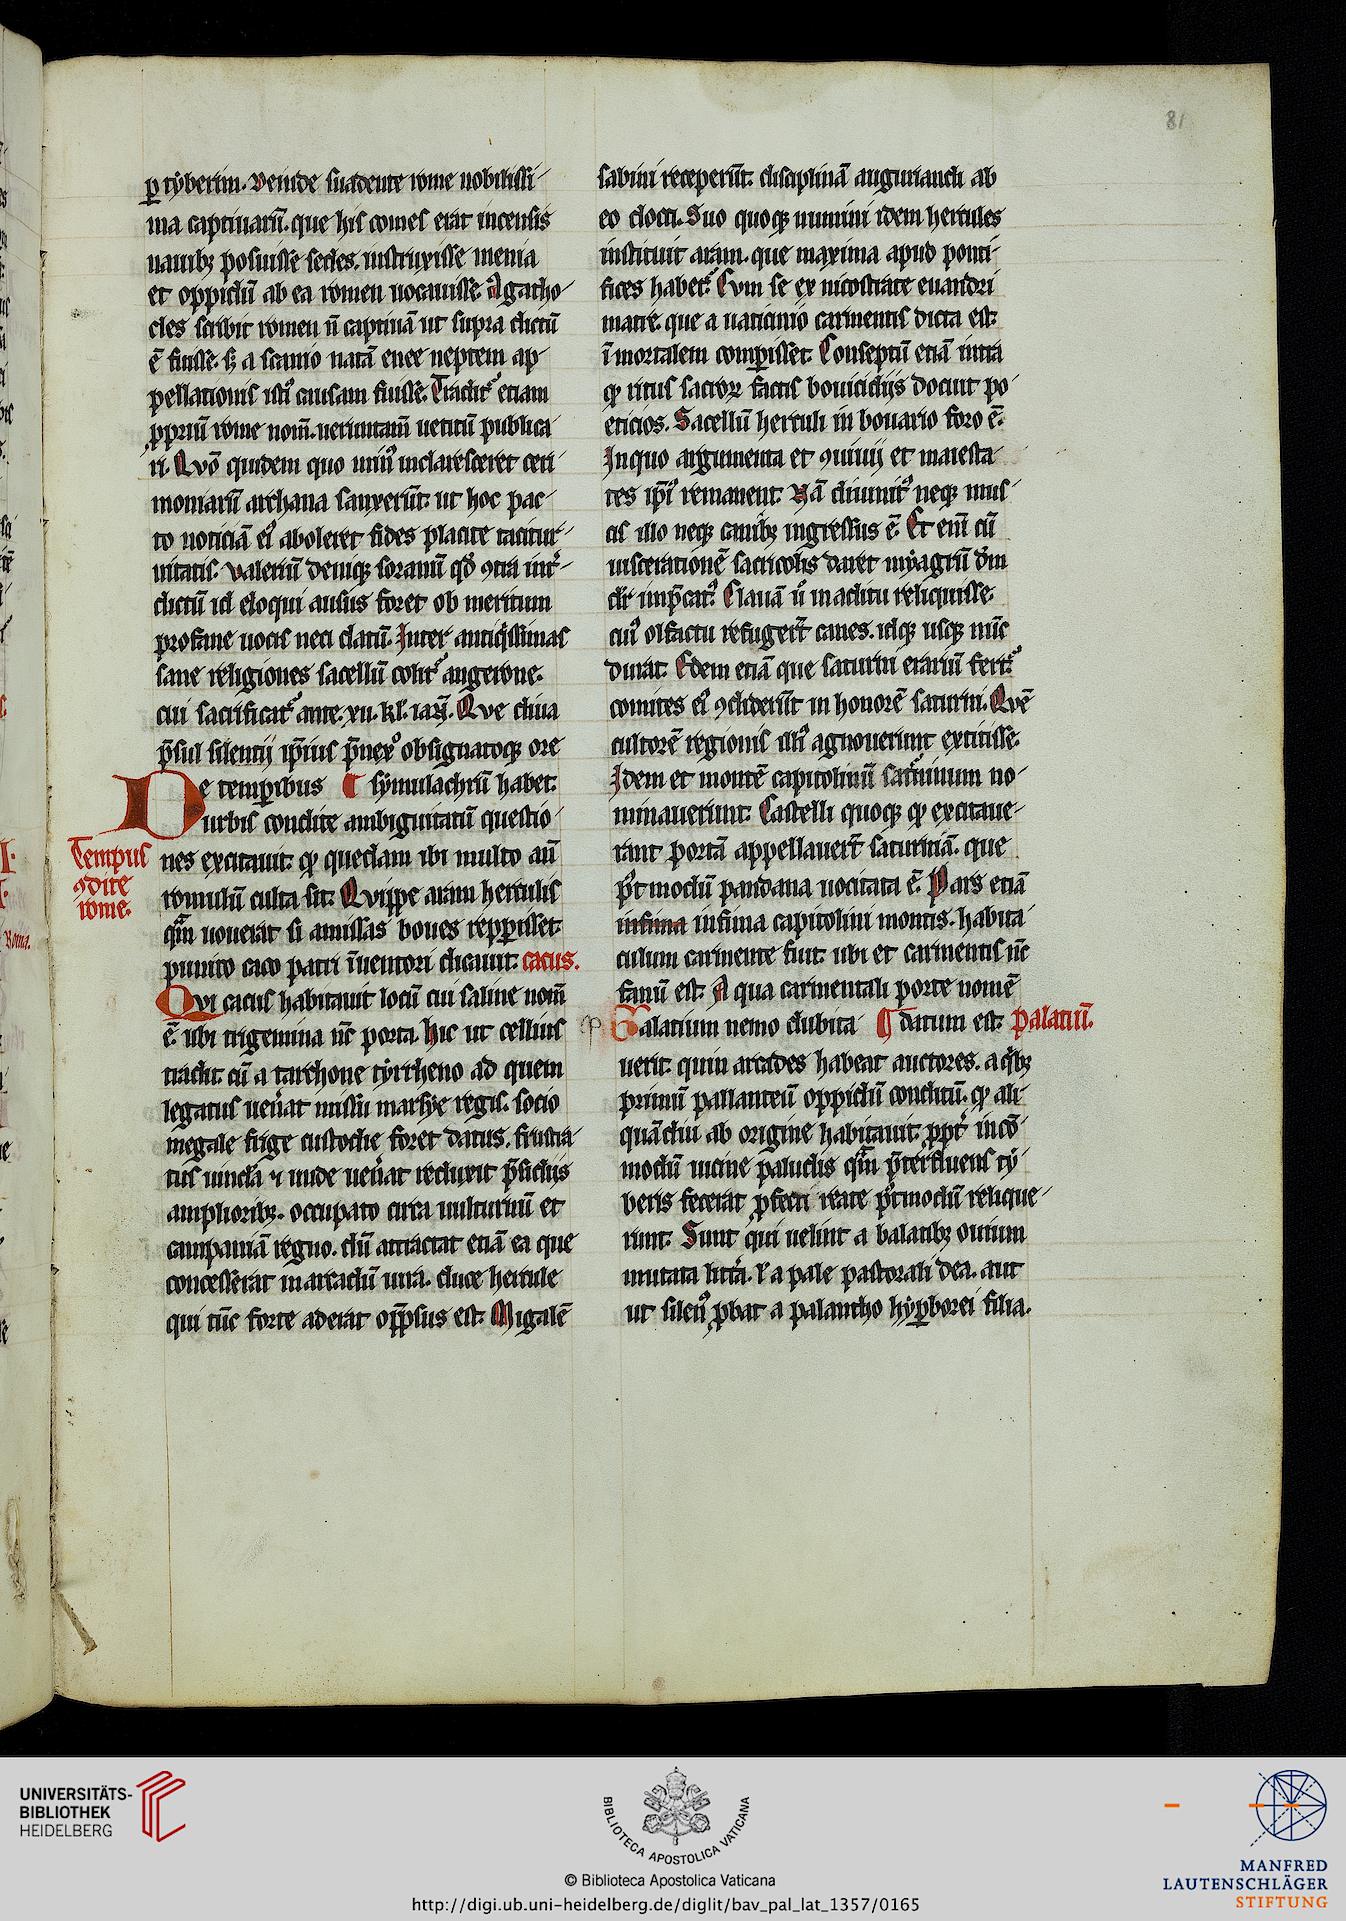 81
ꝑ tyberim. Deinde suadente rome nobilissi-
ma captiuarū. que his comes erat incensis
nauibꝫ posuisse sedes. instruxisse menia
et oppidū ab ea romen uocauisse. Agatho-
cles scribit romen n̄ captiuā ut supra dictū
ē fuisse. sꝫ a scanio natā enee neptem ap-
pellationis isti᷒ causam fuisse. Tradit᷒ etiam
ꝓpriū rome nom̄. ueruntam̄ uetitū publica-
ri. Qvō quidem quo min᷒ inclaresceret ceri-
moniarū archana sanxerūt. ut hoc pac-
to noticiā ei᷒ aboleret fides placite tacitur-
nitatis. Valeriū deniqꝫ soranū qd̓ ꝯtra int̓-
dictū id eloqui ausus foret ob meritum
profane uocis neci datū. Inter antiq̓ssimas
sane religiones sacellū colit᷒ angerone.
cui sacrificat᷒ ante. xii. kl. iaɳ̄. Qve diua
p̄sul silentij ip̄ius p̄nex᷒ obsignatoqꝫ ore
De temꝑibus ¶ symulachrū habet.
urbis condite ambiguitatū questio-
nes excitauit. ꝙ quedam ibi multo an̄
Tempus
ꝯdite
rome.
romulū culta sit. Qvippe aram herculis
qm̄ uouerat si amissas boues repꝑisset.
punito caco patri īuentori dicauit. cacus.
Qvi cacus habitauit locū cui saline nom̄
ē. ubi trigemina nc̄ porta. hic ut cellius
tradit. cū a tarchone tyrrheno ad quem
legatus uen̓at missu marsye regis. socio
megale frige custodie foret datus. frustra-
tus uincla ⁊ unde uen̓at redux̓it p̄sidijs
amplioribꝫ. occupato circa uulturnū et
campaniā regno. dū attractat etiā ea que
concesserāt in arcadū iura. duce hercule
qui tūc forte aderat opp̄ssus est. Migalē
sabini receperūt. disciplinā auguriandi ab
eo docti. Suo quoqꝫ numini idem hercules
instituit aram. que maxima apud ponti-
fices habet᷒. Cvm se ex nicostrate euandri
matre. que a uaticinio carmentis dicta est.
īmortalem comꝑisset. Conseptū etiā intra
ꝙ ritus sacroꝝ factis bouicidijs docuit po-
eticios. Sacellū herculi in bouario foro ē.
In quo argumenta et ꝯuiuij et maiesta-
tes ip̄i᷒ remanent. Nā diuinit᷒ neqꝫ mus-
cis illo neqꝫ canibꝫ ingressus ē. Et enī cū
uiscerationē sacricolis daret myagrū dm̄
dr̄ inp̄cat᷒. Clauā u᷒ in aditu reliquisse.
cui᷒ olfactu refugerūt canes. idqꝫ usqꝫ nūc
durat. Edem etiā que saturni erariū fert᷒
comites ei᷒ ꝯdiderūt in honorē saturni. Qvē
cultorē regionis illi᷒ agnouerunt extitisse.
Idem et montē capitolinū saturninum no-
minauerunt. Castelli quoqꝫ ꝙ excitaue-
rant portā appellauer̄t saturniā. que
p᷒tmodū pandana uocitata ē. Pars etiā
infima infima capitolini montis. habita-
culum carmente fuit. ubi et carmentis nc̄
fanū est. A qua carmentali porte nomē
Palatium nemo dubita- ¶ datum est. Palatiū.
uerit quin arcades habeat auctores. a q̓bꝫ
primū pallanteū oppidū conditū. ꝙ ali-
quādiu ab origine habitauit. ꝓpt̓ incō-
modū uicine paludis qm̄ p̄terfluens ty-
beris fecerat ꝓfecti reate p᷒tmodū relique-
runt. Sunt qui uelint a balatibꝫ ouium
mutata litt̓a. ł a pale pastorali dea. aut
ut silen᷒ ꝓbat a palantho hyꝑborei filia.
UNIVERSITÄTS-
BIBLIOTHEK
HEIDELBERG
BIBLIOTECA APOSTOLICA VATICANA
© Biblioteca Apostolica Vaticana
http://digi.ub.uni-heidelberg.de/diglit/bav_pal_lat_1357/0165
MANFRED
LAUTENSCHLÄGER
STIFTUNG